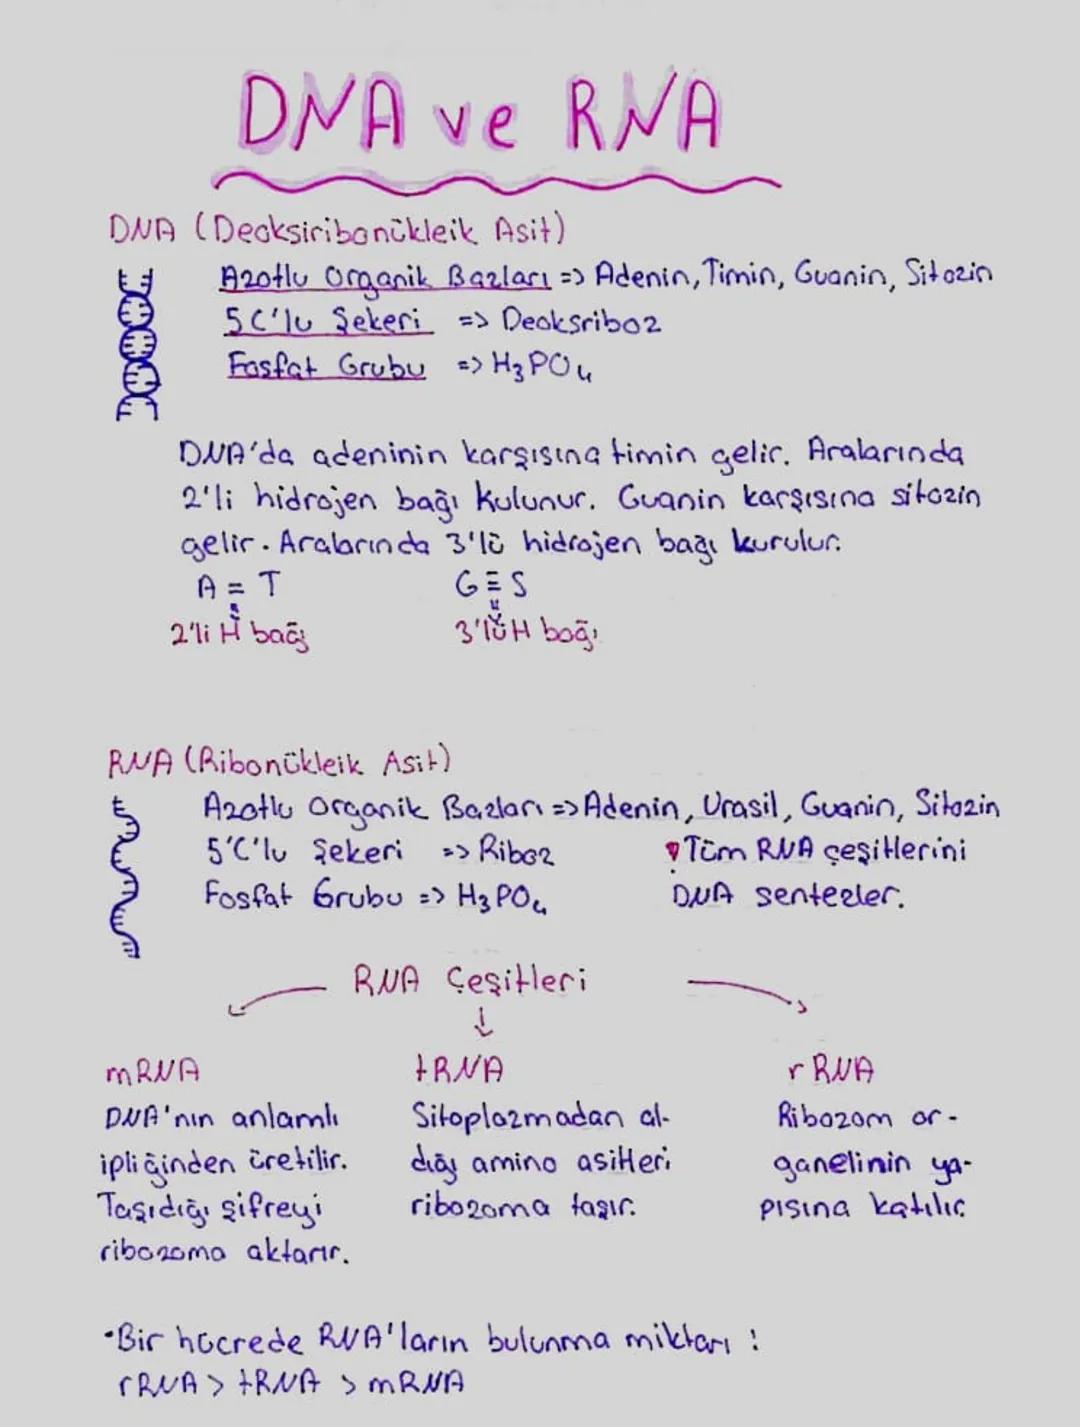 DNA ve RNA
DNA (Deoksiribonükleik Asit)
Azotlu Organik Bazları => Adenin, Timin, Guanin, Sitozin
5C'lu Şekeri => Deoksriboz
Fosfat Grubu => H₃PO₄
DNA'da adeninin karşısına timin gelir. Aralarında
2'li hidrojen bağı Kulunur. Guanin karşısına sitozin
gelir. Aralarında 3'lü hidrojen bağı kurulur.
A = T G ≡ S
2'li H bağı 3'lü H bağı
RNA (Ribonükleik Asit)
Azotlu Organik Bazları => Adenin, Urasil, Guanin, Sitozin
5'C'lu Şekeri => Riboz
Tüm RNA çeşitlerini
Fosfat Grubu => H₃PO₄
DNA sentezler.
RNA Çeşitleri
mRNA
DNA'nın anlamlı
ipliğinden üretilir.
Taşıdığı şifreyi
ribozoma aktarır.
tRNA
Sitoplazmadan al-
dığı amino asitleri
ribozoma taşır.
rRNA
Ribozom or-
ganelinin ya-
pısına katılır.
•Bir hücrede RNA'ların bulunma miktarı :
rRNA > tRNA > mRNA